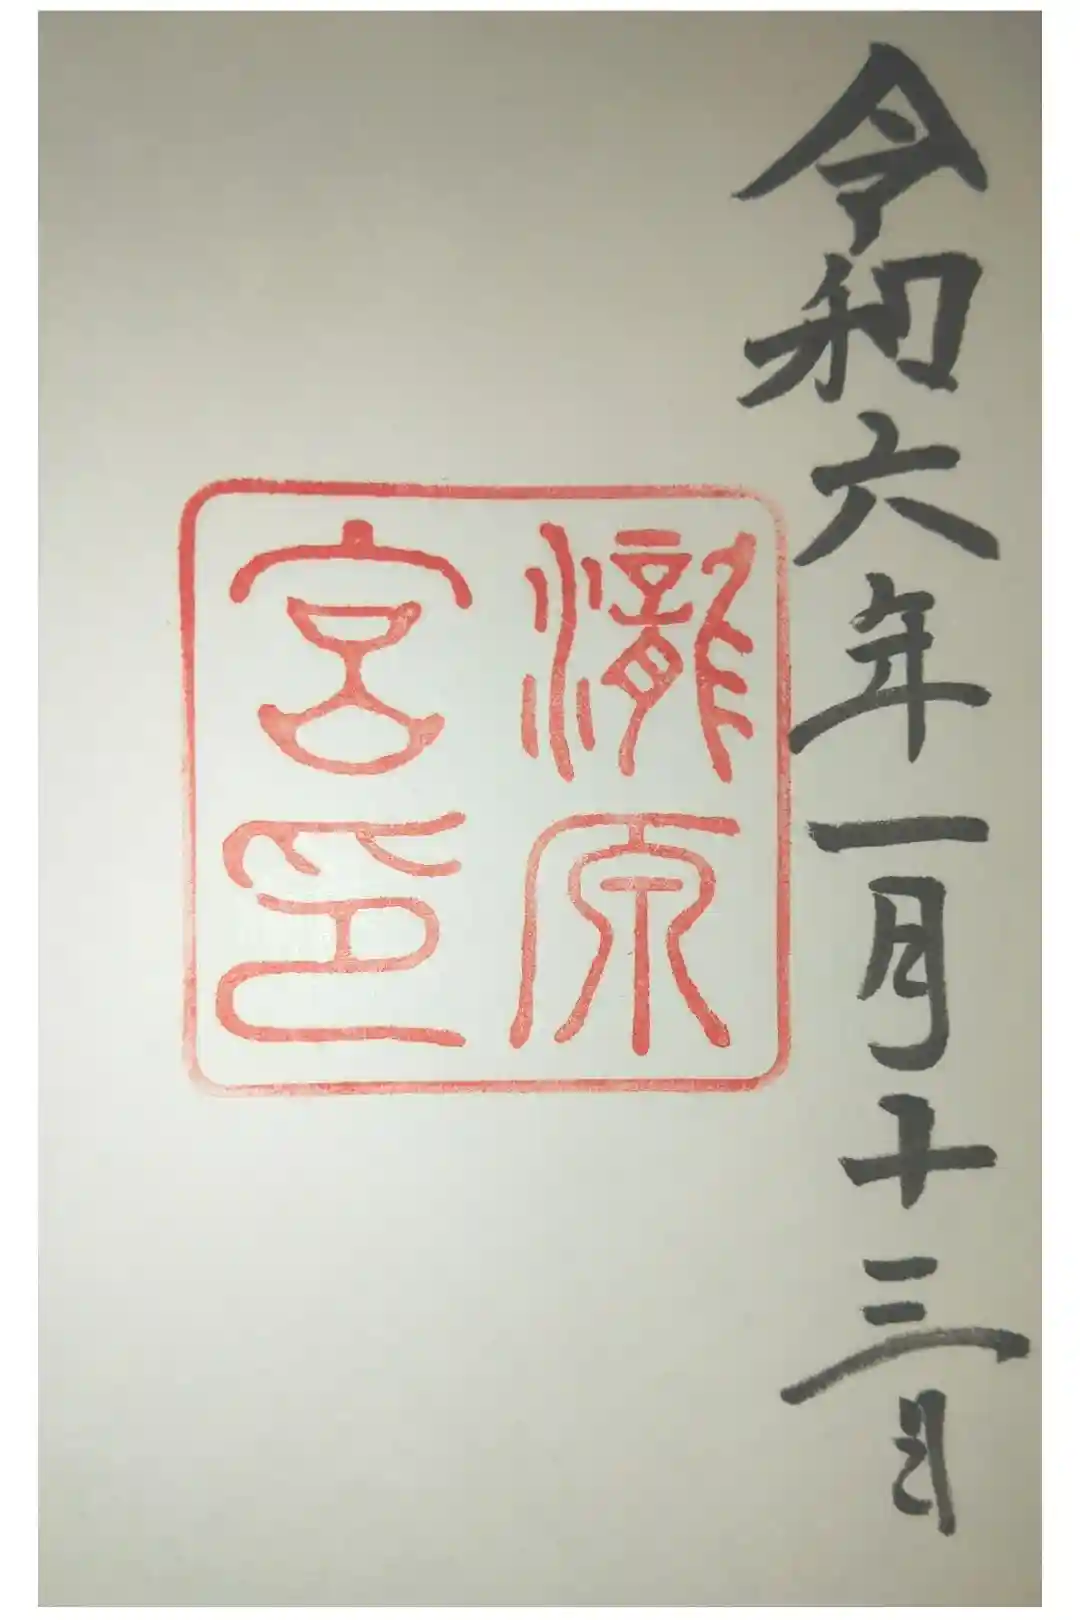 令和六年一月十三日
瀧原
宮印